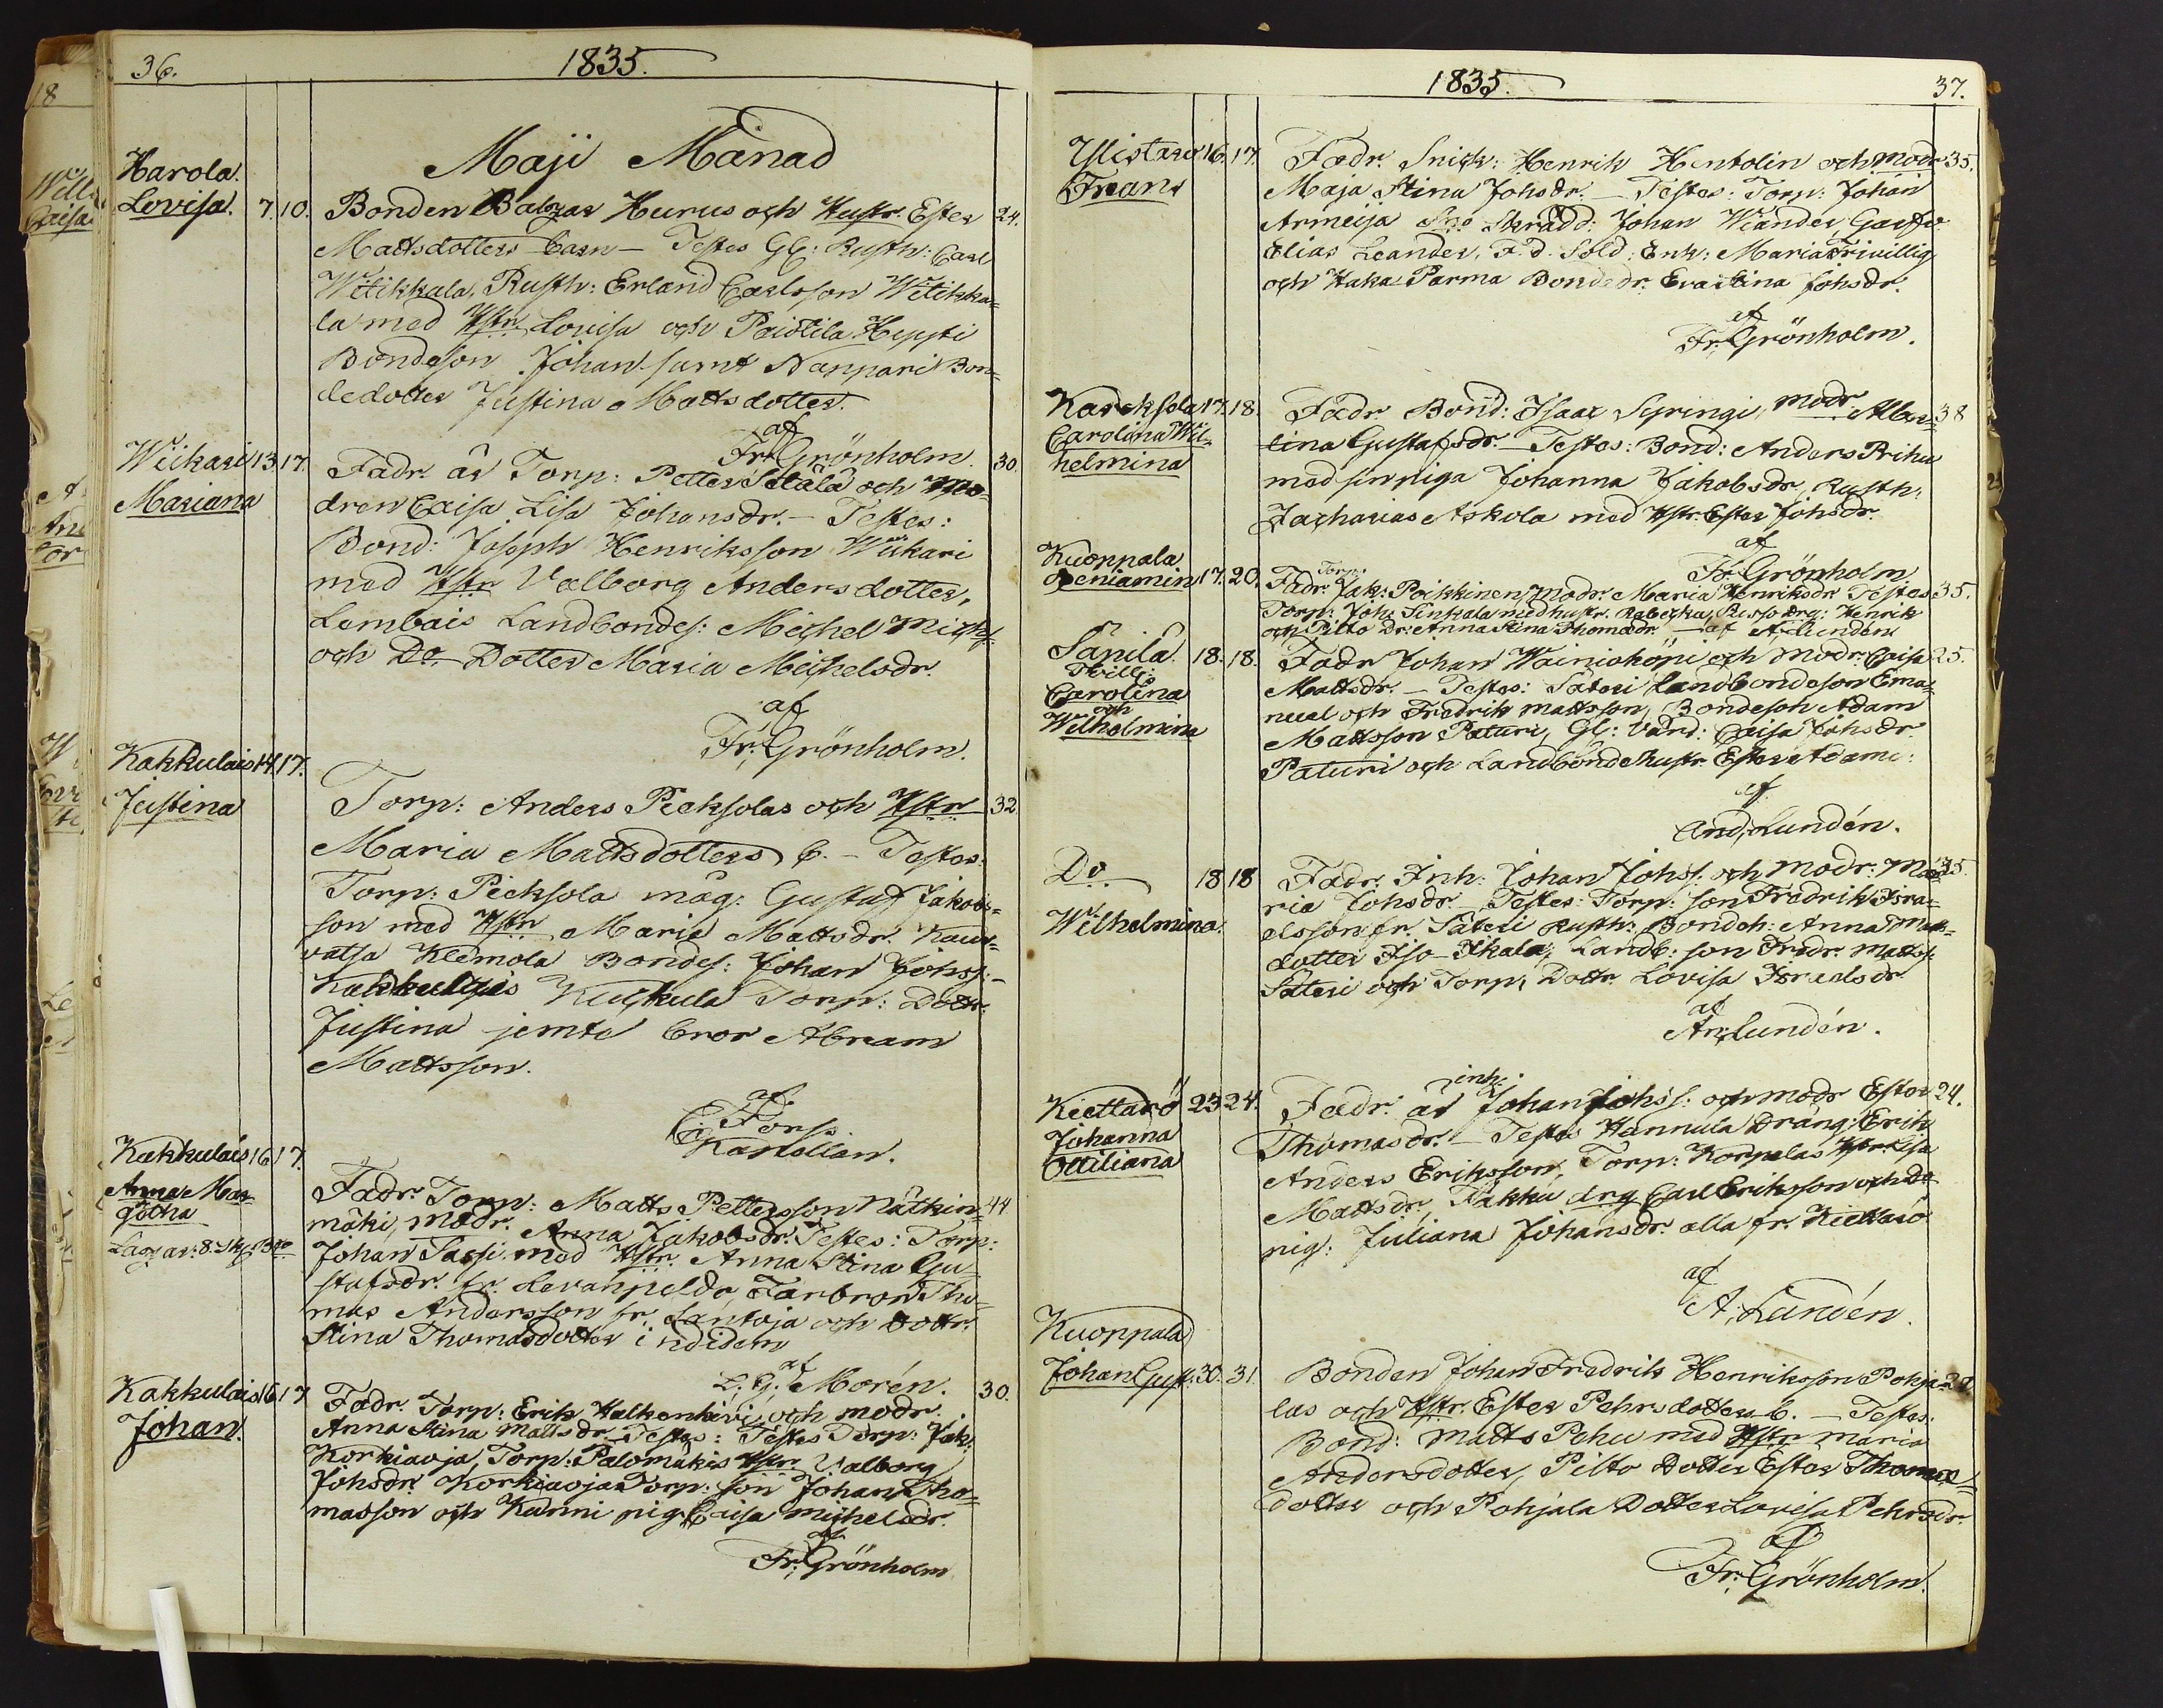 36.
1835.
Maji Månad
Harola.
Lovisa. 7. 10. Bonden Balzar Hurus och Hustr. Ester 24.
Mattsdotters barn – Testes Gl: Rusth: Carl
Witikkala, Rusth: Erland Carlsson Witikka=
la med Hstr. Lovisa och Paidtila Heppti
Bondeson Johan samt Nanpari Bon=
dedotter Justina Mattsdotter.
af
Fr: Grönholm.
Wiikari 13. 17. Fadr. är Torp: Petter Setälä och Mo= 30.
Mariana
dren Caisa Lisa Johansdr. – Testes:
Bond: Joseph Henriksson Wiikari
med Hstr Valborg Andersdotter,
Lembois Landbondes: Michel Michs:
och Do Dotter Maria Michelsdr.
af
Fr: Grönholm.
Kakkulais 14. 17.
Justina
Torp: Anders Pieksolas och Hstr 32
Maria Mattsdotters b. – Testes:
Torp: Pieksola måg: Gustaf Jakobs=
son med Hstr Maria Mattsdr. Kau=
vatsa Klemola Bondes: Johan Johss: –
Kakkulais Kuckula Torp: Dottr.
Justina jemte bror Abram
Mattsson.
af
C. Forss.
Kapellan.
Kakkulais 16. 17.
Anna Mar=
getha
Fadr. Torp: Matts Pettersson Nätkin= 44
mäki, modr. Anna Jakobsdr. Testes: Torp:
Johan Sassi med Hstr. Anna Stina Gu=
stafsdr. fr. Levanpelda, Farbron Tho=
mas Andersson fr. Lantoja och Dottr.
Stina Thomasdotter indidem
af
L. G. Morén.
Kakkulais 16. 17
Johan.
Fadr. Torp: Erik Halkenkivi och modr. 30.
Anna Stina Mattsdr. Testes: Testes Torp: Jak:
Korkiaoja, Torp: Palomäkis Hstr. Valborg
Johsdr. Korkiaoja Torp: son Johan Tho=
masson och Kurni pig: Caisa Michelsdr.
af
Fr: Grönholm
1835.
37.
Ylistaro 16. 17.
Frans
Fadr. Snick: Henrik Hentolin och modr 35.
Maja Stina Johsdr. – Testes: Torp: Johan
Armeija Skrädd: Johan Wiander, Gast
Elias Leander, F.d. Sold: Enk: Maria Frivillig
och Haka Parma Bondedr. Eva Stina Johsdr.
af
Fr: Grönholm.
Kareksela 17. 18.
Carolina Wil=
helmina
Fadr. Bond: Isaac Syringi, modr Alber= 38
tina Gustafsdr. – Testes: Bond: Anders Prihu
med sin piga Johanna Jakobsdr, Rusth:
Zacharias Askola med Hstr. Ester Johsdr.
af
Fr: Grönholm.
Kuoppala
Beniamin 17. 20.
Torp:
Fadr. Jak: Poikkinen, Modr. Maria Henriksdr Testes 35.
Torp: Joh: Sinkala med hustr. Rebecka, Risso drg: Henrik
och Pilto Dr: Anna Stina Thomadr. – af A. Lundén
Sänilä 18. 18.
Tvill:
Carolina
och
Wilhelmina
Fadr Johan Wäiniohöpi och Modr: Caisa 25.
Mattsdr. – Testes: Säteri Landbondeson Ema=
nuel och Fredrik Mattsson, Bondeson Adam
Mattsson Paturi, Gl: Värd: Caisa Johsdr
Paturi och Landbond Hustr. Ester Adams:
af
And. Lundén.
Do 18 18
Wilhelmina.
Fadr. Inh: Johan Johss: och Modr: Ma= 35
ria Johsdr. – Testes: Torp: son Fredrik Isra=
elsson fr. Säteri Rusth: Bondeh: Anna Matts=
dotter Iso-Ikala, Landb: son Fredr. Mattss:
Säteri och Torp: Dottr. Lovisa Israelsdr
af
An: Lundén.
Kiettarö 23 24.
Johanna
Ottiliana
inh:
Fadr. är Johan Johss: och modr Ester 24.
Thomasdr. – Testes Hannula Dräng: Erik
Anders Eriksson, Torp: Korpelas Hstr: Lisa
Mattsdr, Takku drg Carl Eriksson och do
pig: Juliana Johansdr. alla fr. Kiettarö
af
A. Lundén.
Kuoppala
Johan Gust: 30. 31.
Bonden Johan Fredrik Henriksson Pohja= 28
las och Hstr. Ester Pehrsdotters b. – Testes:
Bond: Matts Pehu med Hstr Maria
Andersdotter, Pilto Dotter Ester Thomas=
dotter och Pohjala Dotter Lovisa Pehrsdr.
af
Fr: Grönholm.